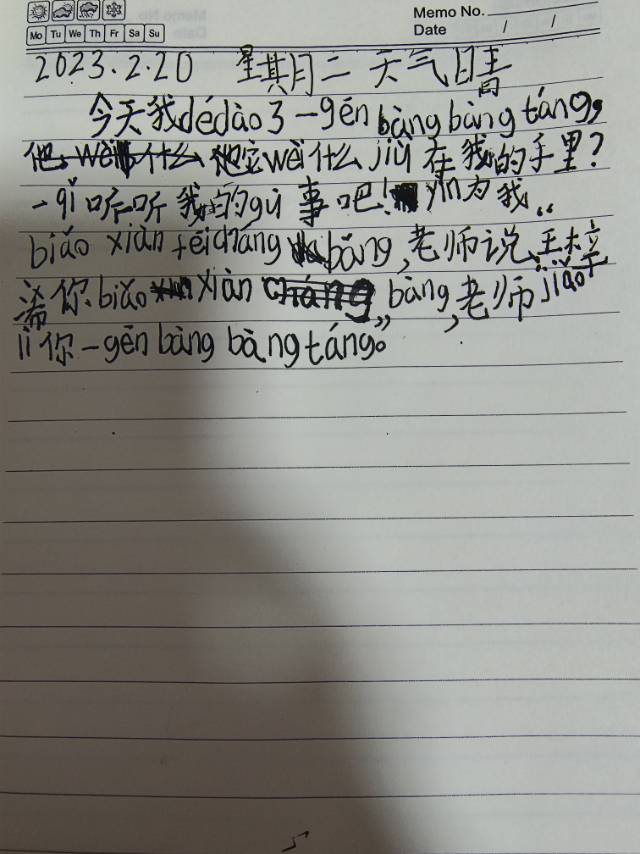 Memo No.
Mo Tu We Th Fr Sa Su
Date / /
2023.2.20 星其月二 天气晴
今天我dédào了一gēn bàng bàng táng,
它wèi什么jiù在我的手里?
一qǐ听听我的gù事吧!yīn为我
biǎo xiàn fēicháng bàng,老师说、王梓
浠你biǎo xiàn bàng,老师jiǎng
lì你一gēn bàng bàng táng。